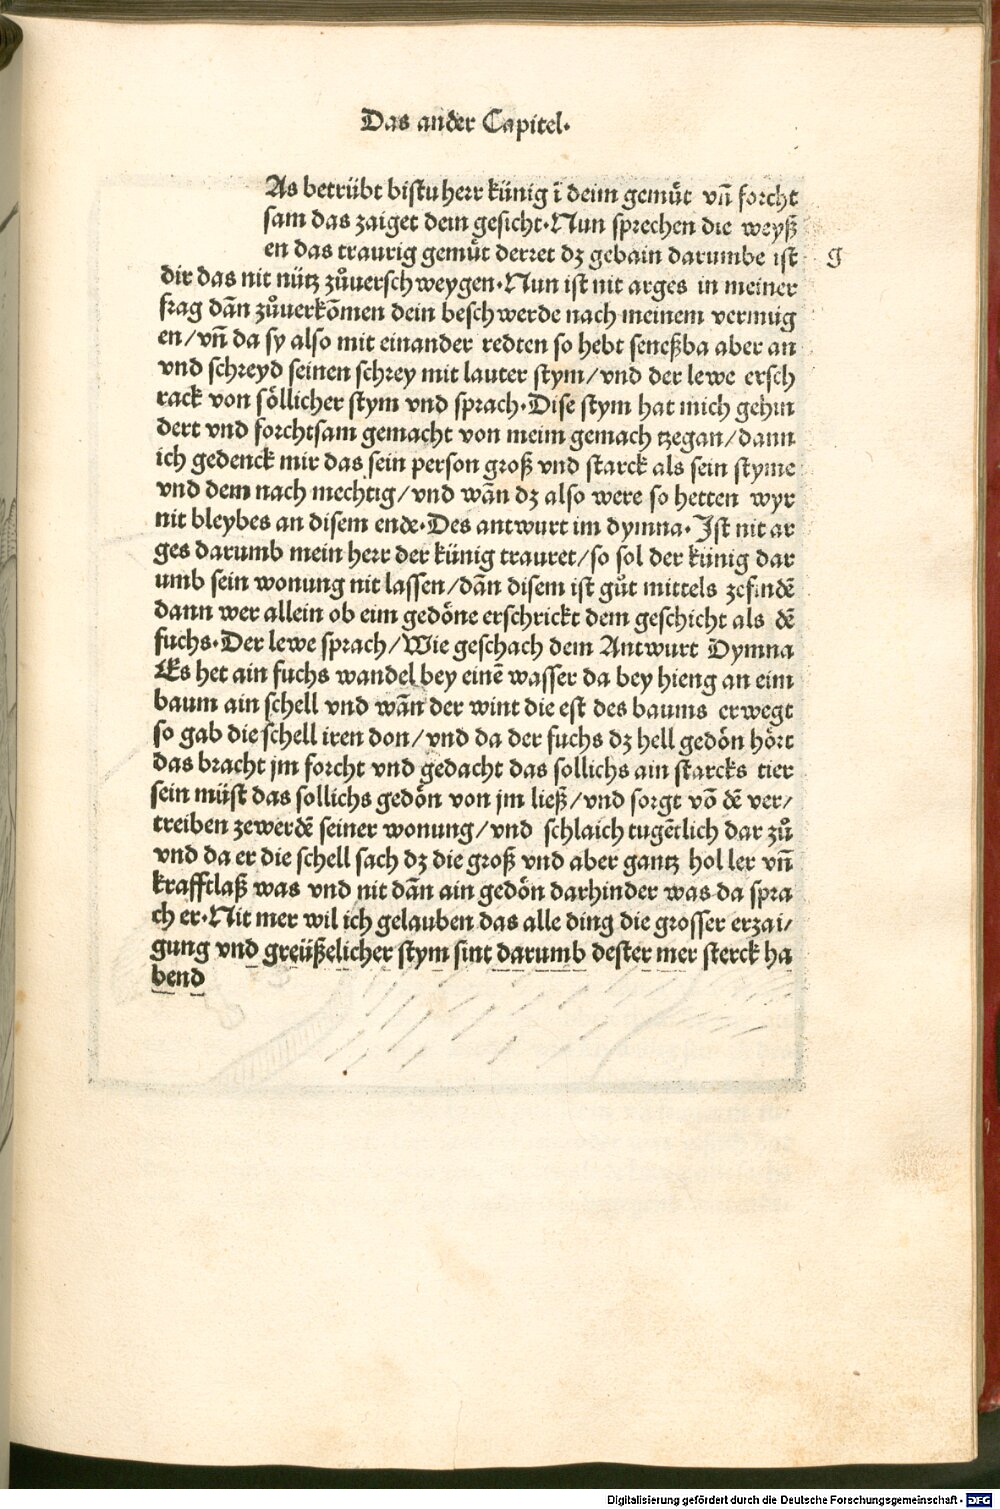 Das ander Capitel.
As betrübt bistu herr künig ī deim gemuͤt vn̄ forcht
sam das zaiget dein gesicht. Nun sprechen die weyß
en das traurig gemuͤt derret dz gebain darumbe ist
g
dir das nit nütz zuͦuerschweygen. Nun ist nit arges in meiner
frag dān zuͦuerkōmen dein beschwerde nach meinem vermüg
en/vn̄ da sy also mit einander redten so hebt seneßba aber an
vnd schreyd seinen schrey mit lauter stym/vnd der lewe ersch
rack von söllicher stym vnd sprach. Dise stym hat mich gehin
dert vnd forchtsam gemacht von meim gemach tzegan/dann
ich gedenck mir das sein person groß vnd starck als sein styme
vnd dem nach mechtig/vnd wān dz also were so hetten wyr
nit bleybes an disem ende. Des antwurt im dymna. Ist nit ar
ges darumb mein herr der künig trauret/so sol der künig dar
umb sein wonung nit lassen/dān disem ist guͦt mittels zefindē
dann wer allein ob eim gedöne erschrickt dem geschicht als dē
fuchs. Der lewe sprach/Wie geschach dem Antwurt Dymna
Es het ain fuchs wandel bey einē wasser da bey hieng an eim
baum ain schell vnd wān der wint die est des baums erwegt
so gab die schell iren don/vnd da der fuchs dz hell gedön hört
das bracht jm forcht vnd gedacht das sollichs ain starcks tier
sein müst das sollichs gedön von jm ließ/vnd sorgt vō dē ver/
treiben zewerdē seiner wonung/vnd schlaich tugētlich dar zuͦ
vnd da er die schell sach dz die groß vnd aber gantz hol ler vn̄
krafftlaß was vnd nit dān ain gedön darhinder was da spra
ch er. Nit mer wil ich gelauben das alle ding die grosser erzai/
gung vnd greüßelicher stym sint darumb dester mer sterck ha
bend
Digitalisierung gefördert durch die Deutsche Forschungsgemeinschaft - DFG